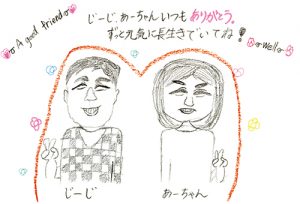 A good friend
じーじ、あーちゃんいつもありがとう。
ずっと元気に長生きでいてね!
じーじ
あーちゃん